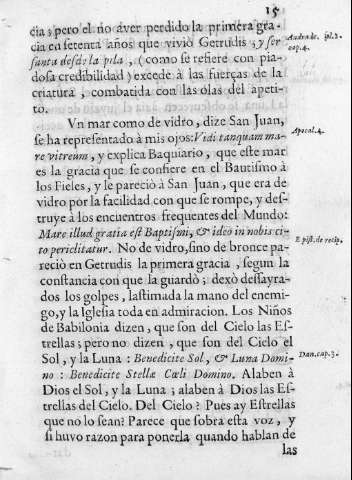 15
cia; pero el no aver perdido la primera gra-
cia en setenta años que vivió Getrudis, y ser
santa desde la pila, (como se refiere con pia-
dosa credibilidad) excede à las fuerças de la
criatura, combatida con las olas del apeti-
to.
Vn mar como de vidro, dize San Juan,
se ha representado à mis ojos: Vidi tanquam ma-
re vitreum, y explica Baquiario, que este mar
es la gracia que se confiere en el Bautismo à
los Fieles, y le pareciò à San Juan, que era de
vidro por la facilidad con que se rompe, y des-
truye à los encuentros frequentes del Mundo:
Mare illud gratia est Baptismi, & ideo in nobis ci-
to periclitatur. No de vidro, sino de bronce pa-
reciò en Getrudis la primera gracia, segun la
constancia con que la guardò; dexò desayra-
dos los golpes, lastimada la mano del enemi-
go, y la Iglesia toda en admiracion. Los Niños
de Babilonia dizen, que son del Cielo las Es-
trellas; pero no dizen, que son del Cielo el
Sol, y la Luna: Benedicite Sol, & Luna Domi-
no: Benedicite Stellæ Cœli Domino. Alaben à
Dios el Sol, y la Luna; alaben à Dios las Es-
trellas del Cielo. Del Cielo? Pues ay Estrellas
que no lo sean? Parece que sobra esta voz, y
si huvo razon para ponerla quando hablan de
las
Andrade.
cap. 4.
Apocal. 4.
Epist. de recip.
Dan. cap. 3.